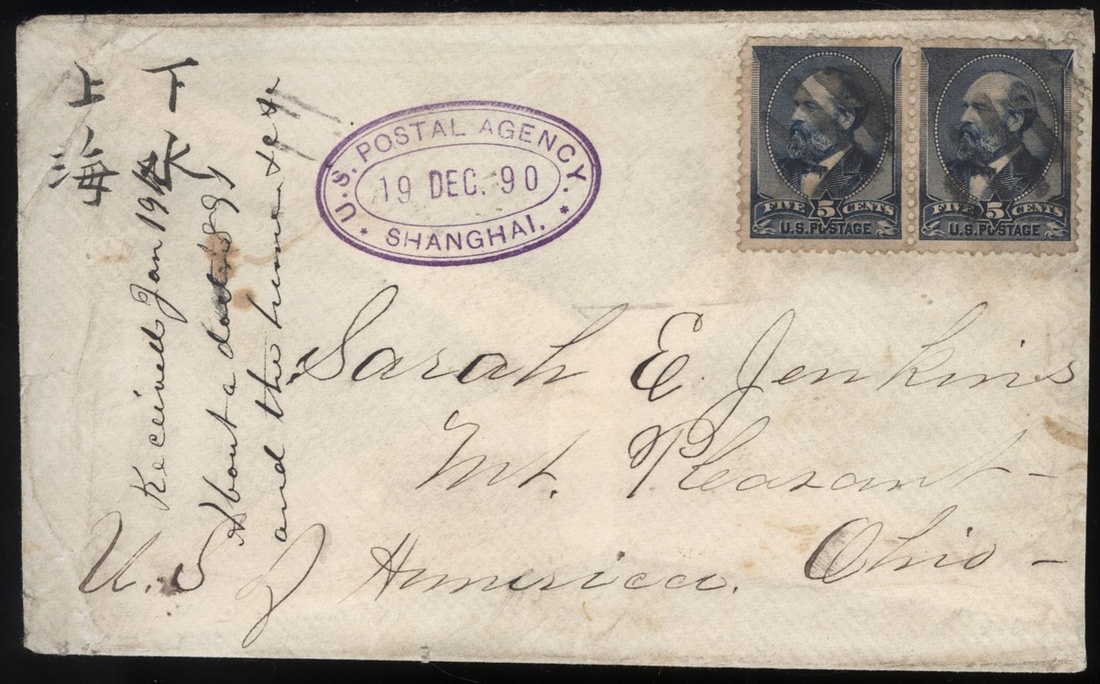 下水
上海
Received Jan 19th
1891
About a
and the
U.S. POSTAL AGENCY.
19 DEC. 90
* SHANGHAI. *
FIVE 5 CENTS
U.S. POSTAGE
FIVE 5 CENTS
U.S. POSTAGE
Sarah E. Jenkins
Mt. Pleasant -
Ohio -
U. S of America.